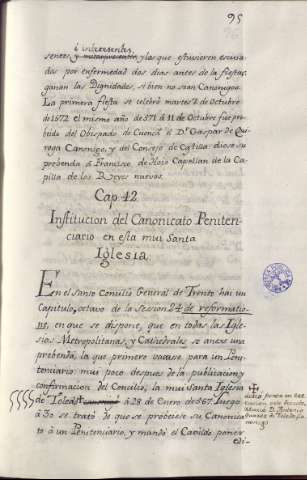 95
96
é interesentes
sentes, y los que estuvieren escusa
dos por enfermedad dos dias antes de la fiesta:
ganan las Dignidades, si bien no sean Canonigos.
La primera fiesta se celebró martes 7 de Octubre
de 1572 el mismo año de 571 à 11 de Octubre fue pro
bido del Obispado de Cuenca à Dn Gaspar de Qui
roga Canonigo, y del Consejo de Castilla: diose su
probenda à Francisco de Capellan de la Ca
pilla de los Reyes nuevos.
Cap 42
Institucion del Canonicato Peniten
ciario en esta mui Santa
Iglesia
En el santo Concilio General de Trento hai un
Capitulo, octavo de la Session 24 de reformatio
ne, en que se dispone, que en todas las Igle
sias Metropolitanas, y Cathedrales se anexe una
prebenda, la que primero vacase para un Peni
tenciario: mui poco despues de la publicacion, y
confirmacion del Concilio, la mui Santa Iglesia
de Toledo à 28 de Enero de 567. Luego
à 30 se trató de que se proveiese su Canonica
to à un Penitenciario, y mandó el Cavildo poner
edi-